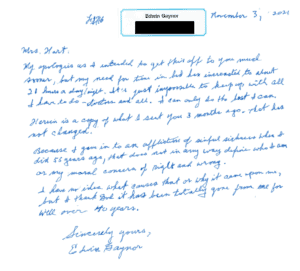 Edwin Gaynor
November 3, 202
Mrs. Hart.
My apologies as I intended to get this off to you much
sooner, but my need for time in bed has increased to about
21 hours a day/night. It is just impossible to keep up with all
I have to do - doctors and all. I can only do the best I can.
Herein is a copy of what I sent you 3 months ago. That has
not changed.
Because I gave in to an affliction of sinful sickness when I
did 56 years ago, that does not in any way define who I am
or my moral concern of right and wrong.
I have no idea what causes that or why it came upon me,
but I thank God it has been totally gone from me for
well over 40 years.
Sincerely yours,
Edwin Gaynor